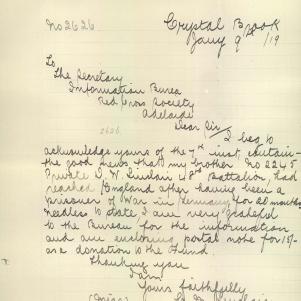 No 2626
Crystal Brook
Jany 9th /19
To
The Secretary
Information Bureau
Red Cross Society
Adelaide
2626
Dear Sir
I beg to
acknowledge yours of the 7th inst contain-
the good news that my brother No 2245
Private W. Sinclair 48th Battalion, had
reached England after having been a
prisoner of War in Germany for 20 months
Needless to state I am very grateful
to the Bureau for the information
and am enclosing postal note for 15/-
as a donation to the Fund
Thanking you
I am
Yours faithfully
(Miss) Sinclair